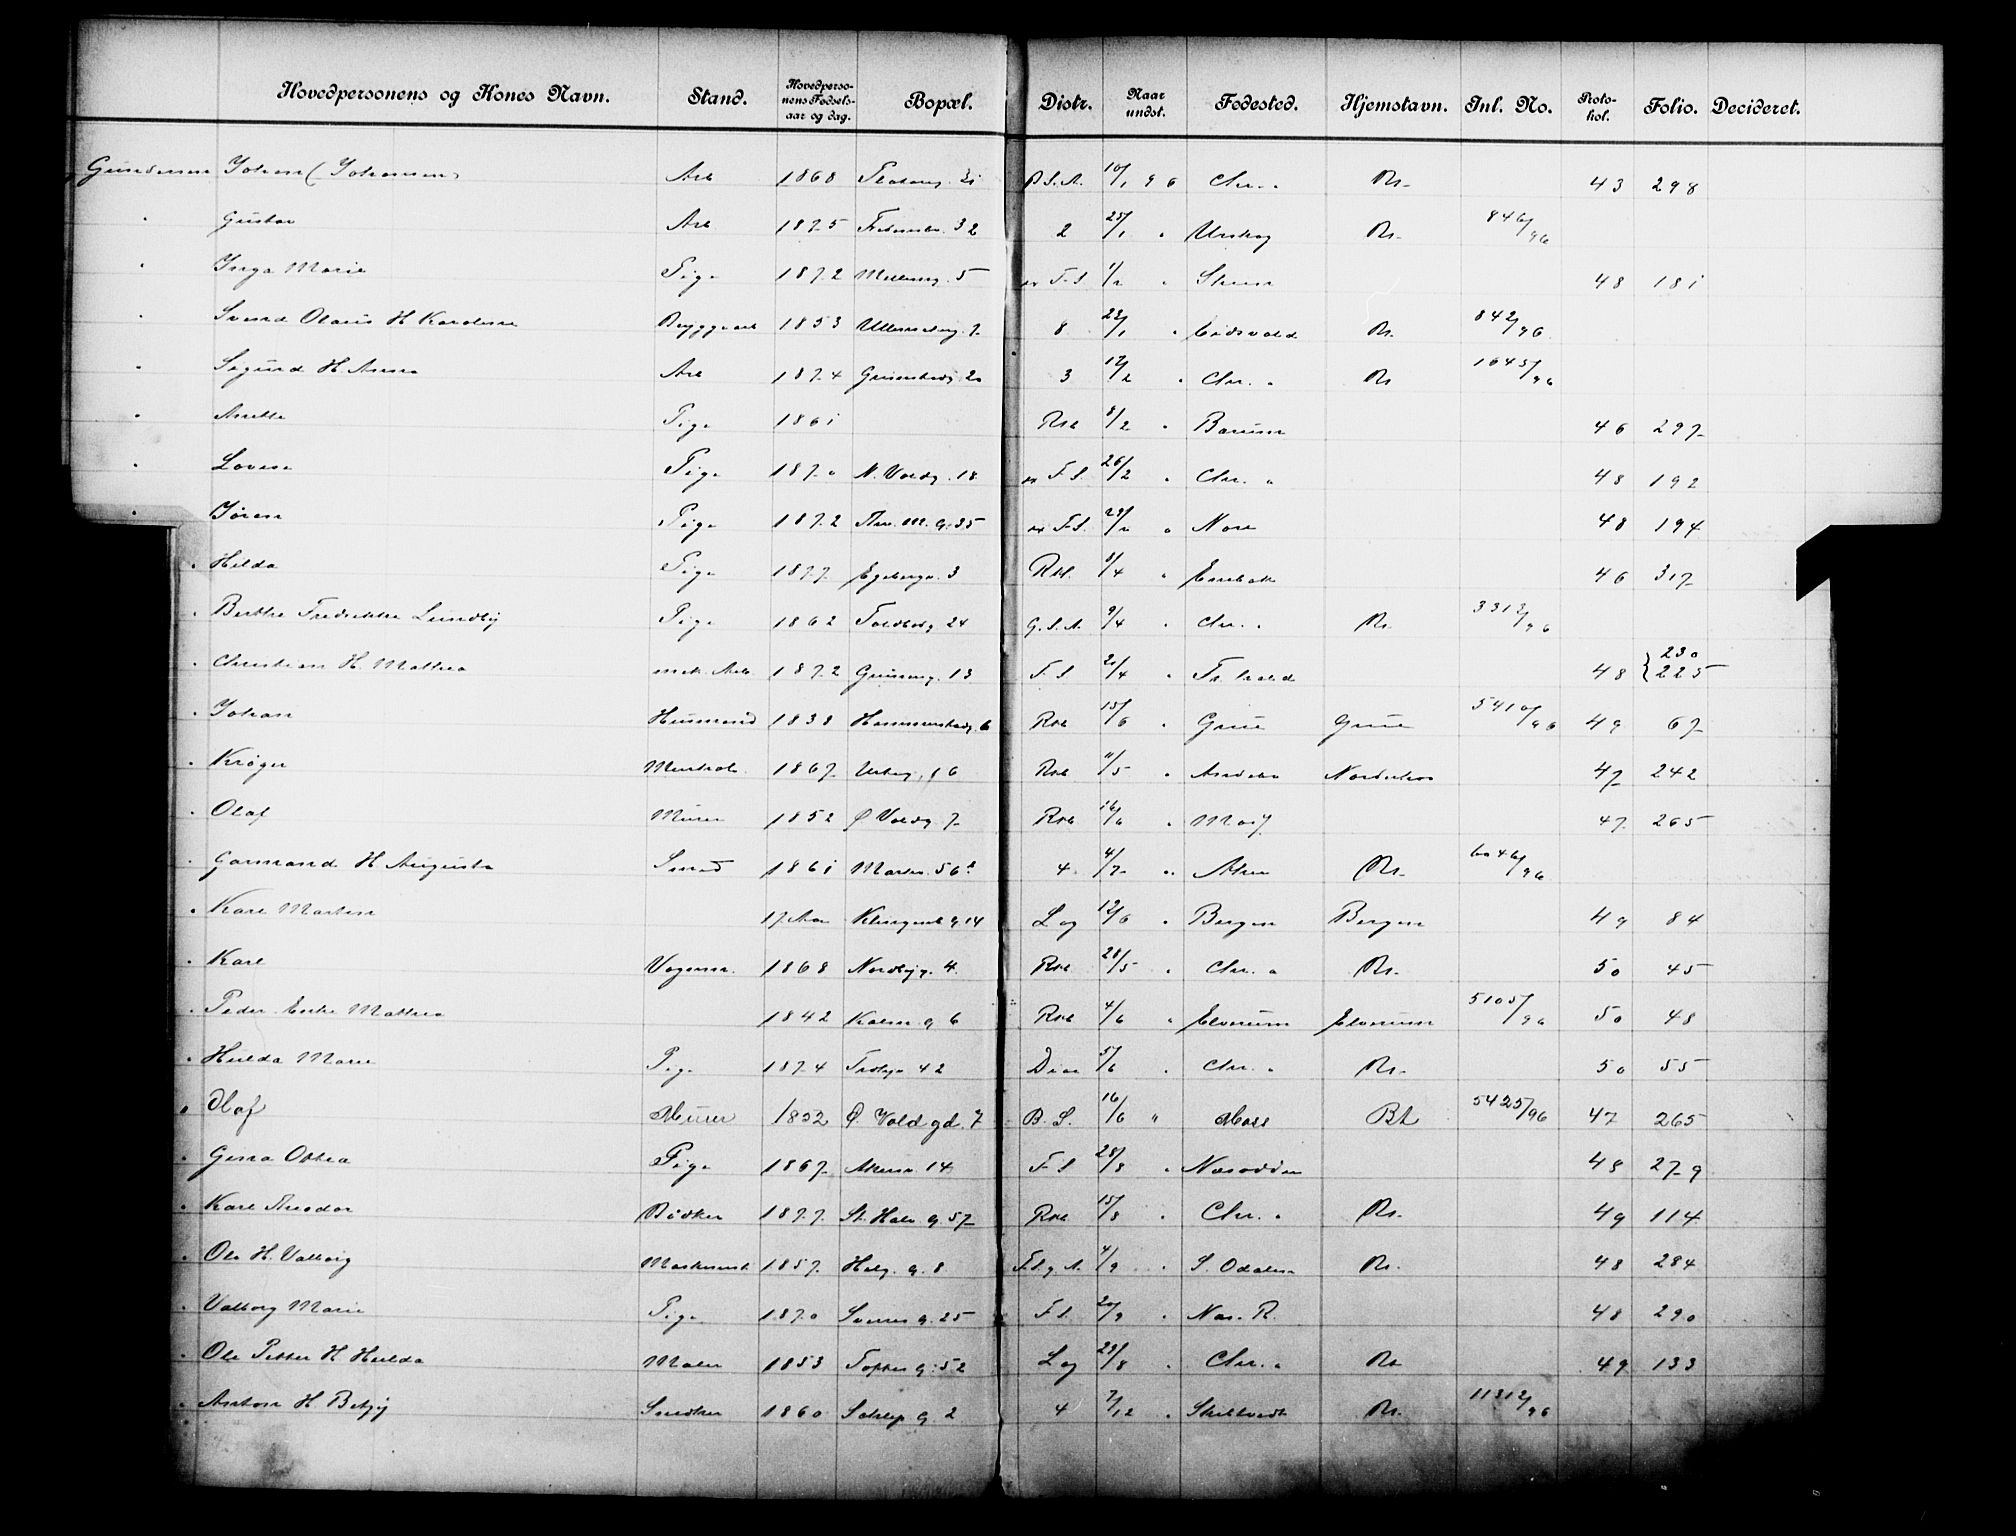 Hovedpersonens og Kones Navn. Stand. Hovedpersonens Fødselsaar og dag. Bopæl. Distr. Naar undst. Fødested. Hjemstavn. Inl. No. Protokol. Folio. Decideret.
Gundersen Johan (Johannen) Arb 1868 B.S.A. 10/1 96 Chr. " Kr. 43 298
" Gustav Arb 1875 32 2 25/1 " Urskog Kr. 846/96
" Inga Marie Pige 1872 Møllerg. 5 F.S. 1/2 " 48 181
" Svend Olaus H Karoline Bryggearb 1853 Ullevaalsvg. 7 8 22/1 " Eidsvold Kr. 842/96
" Sigurd H Anna Arb 1874 20 3 12/2 " Chr. " Kr 1645/96
" Anette Pige 1861 Rst 8/2 " Bærum 46 297
" Lovise Pige 1870 N. Voldg. 18 F.S. 26/2 " Chr. " 48 192
" Jøran Pige 1872 Thv. M. g. 35 F.S. 29/2 " Nore 48 194
" Hilda Pige 1877 Egebergv. 3 Rst. 8/4 " Enebak 46 317
" Berthe Fredrikke Lundby Pige 1862 Toldbodg 24 G.S.A. 9/4 " Chr. " Kr. 3312/96
" Christian H. Mathea mek. Arb. 1872 13 F.S 21/4 " Fr. hald 48 {230 225
" Johan Husmand 1838 Hammersborg. 6 Rst 15/6 " Grue Grue 5410/96 49 67
" Krøger 1867 Urteg. 6 Rst 11/5 " Andebu 47 242
" Olaf Murer 1852 Ø Voldg 7 Rst 16/6 " Moss 47 265
" Garmand H Augusta Smed 1861 Markv. 56 4 4/7 " Aker Kr. 6046/96
" Karl Martin 17 Aar Klingenb g. 14 Log 12/6 " Bergen Bergen 49 84
" Karl Vognm. 1868 Nordbyg. 4 Rst 28/5 " Chr. " Kr. 50 45
" Peder Enke Mathea 1842 g 6 Rst 4/6 " Elverum Elverum 5105/96 50 48
" Hulda Marie Pige 1874 42 Diac 5/6 " Chr. " Kr. 50 55
" Olaf Murer 1852 Ø. Vold gd. 7 B.S. 16/6 " Moss Bt 5425/96 47 265
" Gina Othea Pige 1867 Akersv 14 F.S 28/8 " Næsodden 48 279
" Karl Theodor Bødker 1877 St. Halv g. 57 Rst 15/8 " Chr. " Kr. 49 114
" Ole H. Valborg Maskinist 1857 Helg. g. 8 F.S.g.A. 4/9 " S. Odalen Kr. 48 284
" Valborg Marie Pige 1870 Sverres g. 25 F.S. 20/9 " Næs. R. 48 290
" Ole Petter H Hulda Maler 1853 Toftes g. 52 Log 29/8 " Chr. " Kr 49 133
" Anton H Betzy Snedker 1860 Schlep g. 2 4 7/12 " Skibtvedt Kr. 11312/96